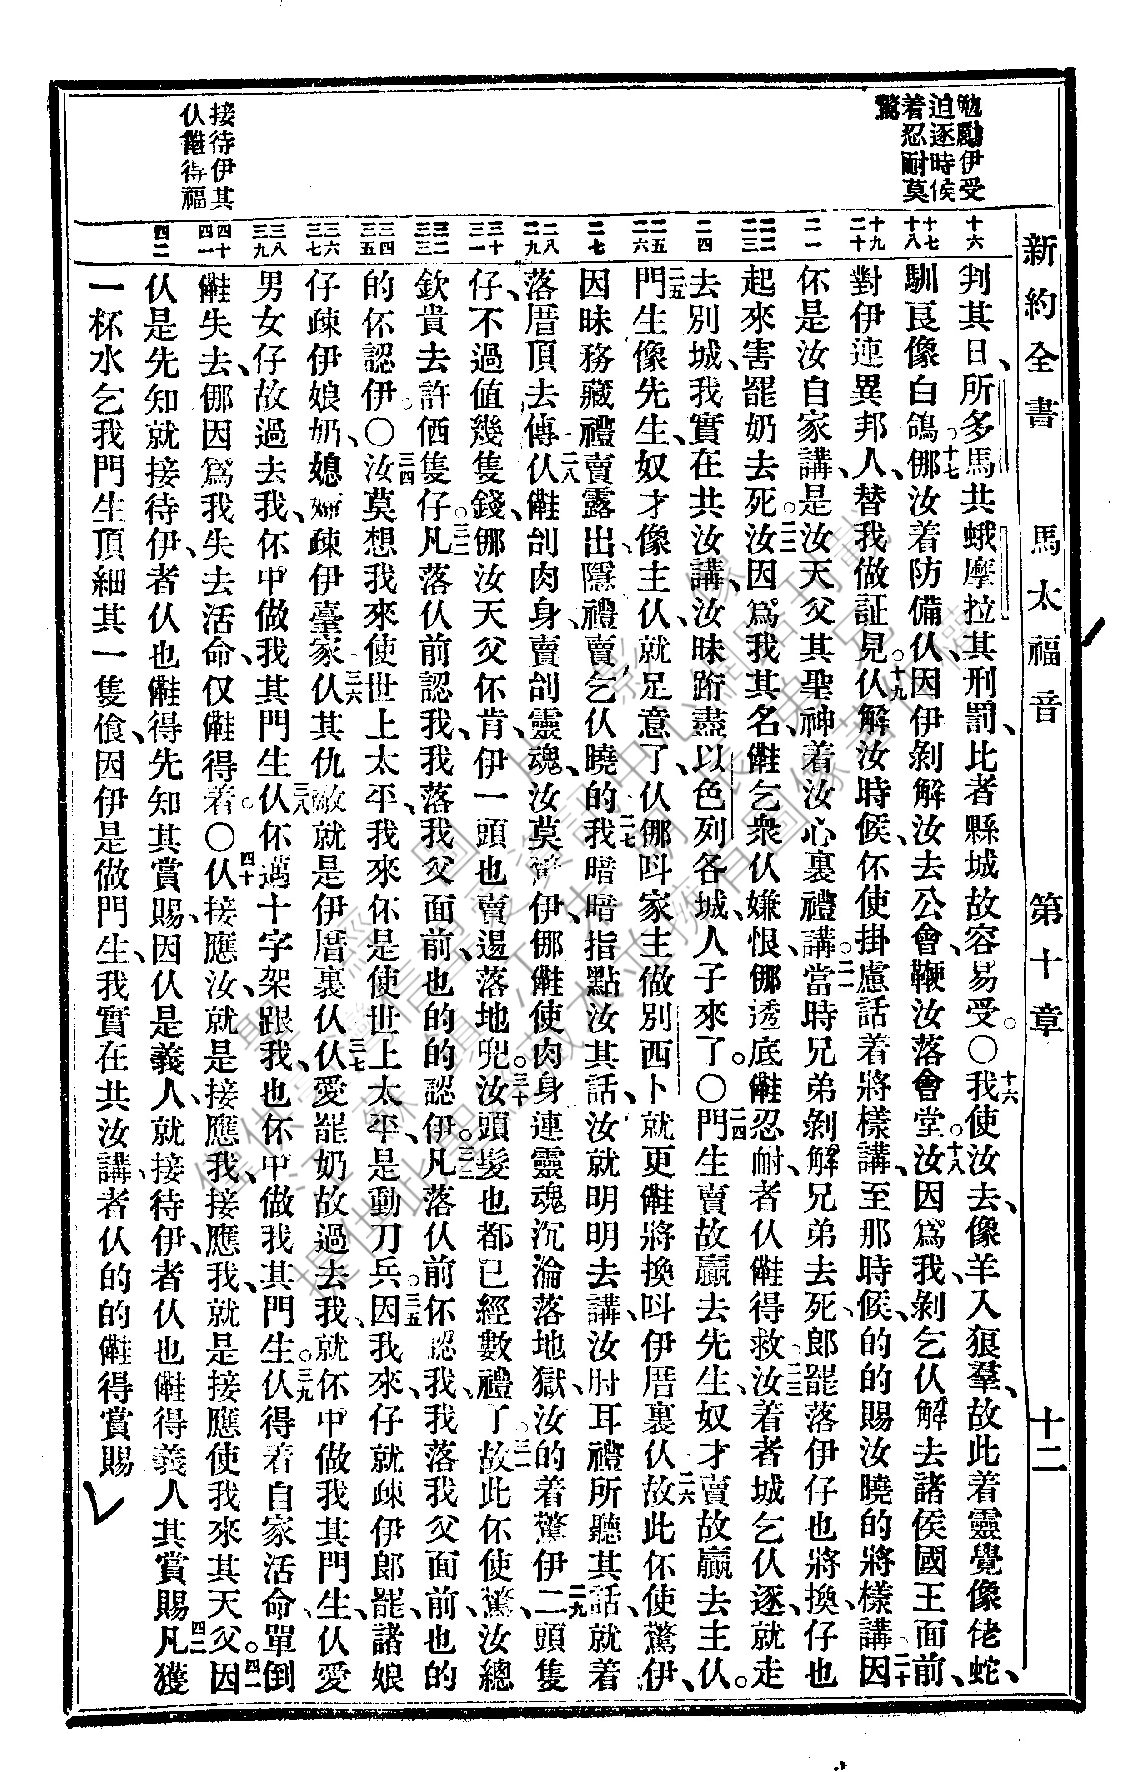 新約全書 馬太福音 第十章 十二
勉勵伊受
迫逐時候
着忍耐莫
驚
接待伊其
仈雦得福
十六
十七 十八
十九 二十
二一
二二 二三
二四
二五 二六
二七
二八 二九
三十 三一
三二 三三
三四 三五
三六 三七
三八 三九
四十 四一
四二
判其日、所多馬共蛾摩拉其刑罰、比者縣城故容易受。〇十六我使汝去、像羊入狼羣、故此着靈覺像佬蛇、
馴良像白鴿。十七㑚汝着防備仈、因伊剝解汝去公會、鞭汝落會堂。十八汝因爲我、剝乞仈解去諸侯國王面前、
對伊連異邦人、替我做証見。十九仈解汝時候、伓使掛慮話着將樣講、至那時候、的的賜汝曉的將樣講、二十因
伓是汝自家講、是汝天父其聖神着汝心裏禮講。二一當時兄弟剝解兄弟去死、郎罷落伊仔也將換、仔也
起來害罷奶去死。二二汝因爲我其名、雦乞衆仈嫌恨、㑚透底雦忍耐者仈雦得救、二三汝着者城乞仈逐、就走
去別城、我實在共汝講、汝昧跡盡以色列各城、人子來了。〇二四門生賣故贏去先生、奴才賣故贏去主仈。
二五門生像先生、奴才像主仈、就足意了、仈㑚叫家主做別西卜、就更雦將換叫伊厝裏仈、二六故此伓使驚伊、
因昧務藏禮賣露出、隱禮賣乞仈曉的、二七我暗暗指點汝其話、汝就明明去講、汝肘耳禮所聽其話、就着
落厝頂去傳、二八仈雦剖肉身、賣剖靈魂、汝莫驚伊、㑚雦使肉身連靈魂沉淪落地獄、汝的着驚伊、二九二頭隻
仔、不過値幾隻錢、㑚汝天父伓肯、伊一頭也賣逷落地兜。三十汝頭髮也都已經數禮了。三一故此伓使驚、汝總
欽貴去許価隻仔。三二凡落仈前認我、我落我父面前、也的的認伊。三三凡落仈前伓認我、我落我父面前、也的
的伓認伊。〇三四汝莫想我來使世上太平、我來伓是使世上太平、是動刀兵。三五因我來、仔就疎伊郎罷、諸娘
仔疎伊娘奶、媳婦疎伊臺家、三六仈其仇敵、就是伊厝裏仈、三七仈愛罷奶故過去我、就伓中做我其門生、仈愛
男女仔故過去我、伓中做我其門生、三八仈伓邁十字架跟我、也伓中做我其門生。三九仈得着自家活命、單倒
雦失去、㑚因爲我失去活命、仅雦得着。〇四十仈接應汝、就是接應我、接應我、就是接應使我來其天父。四一因
仈是先知、就接待伊、者仈也雦得先知其賞賜、因仈是義人、就接待伊、者仈也雦得義人其賞賜、四二凡獲
一杯水乞我門生頂細其一隻飲、因伊是做門生、我實在共汝講、者仈的的雦得賞賜